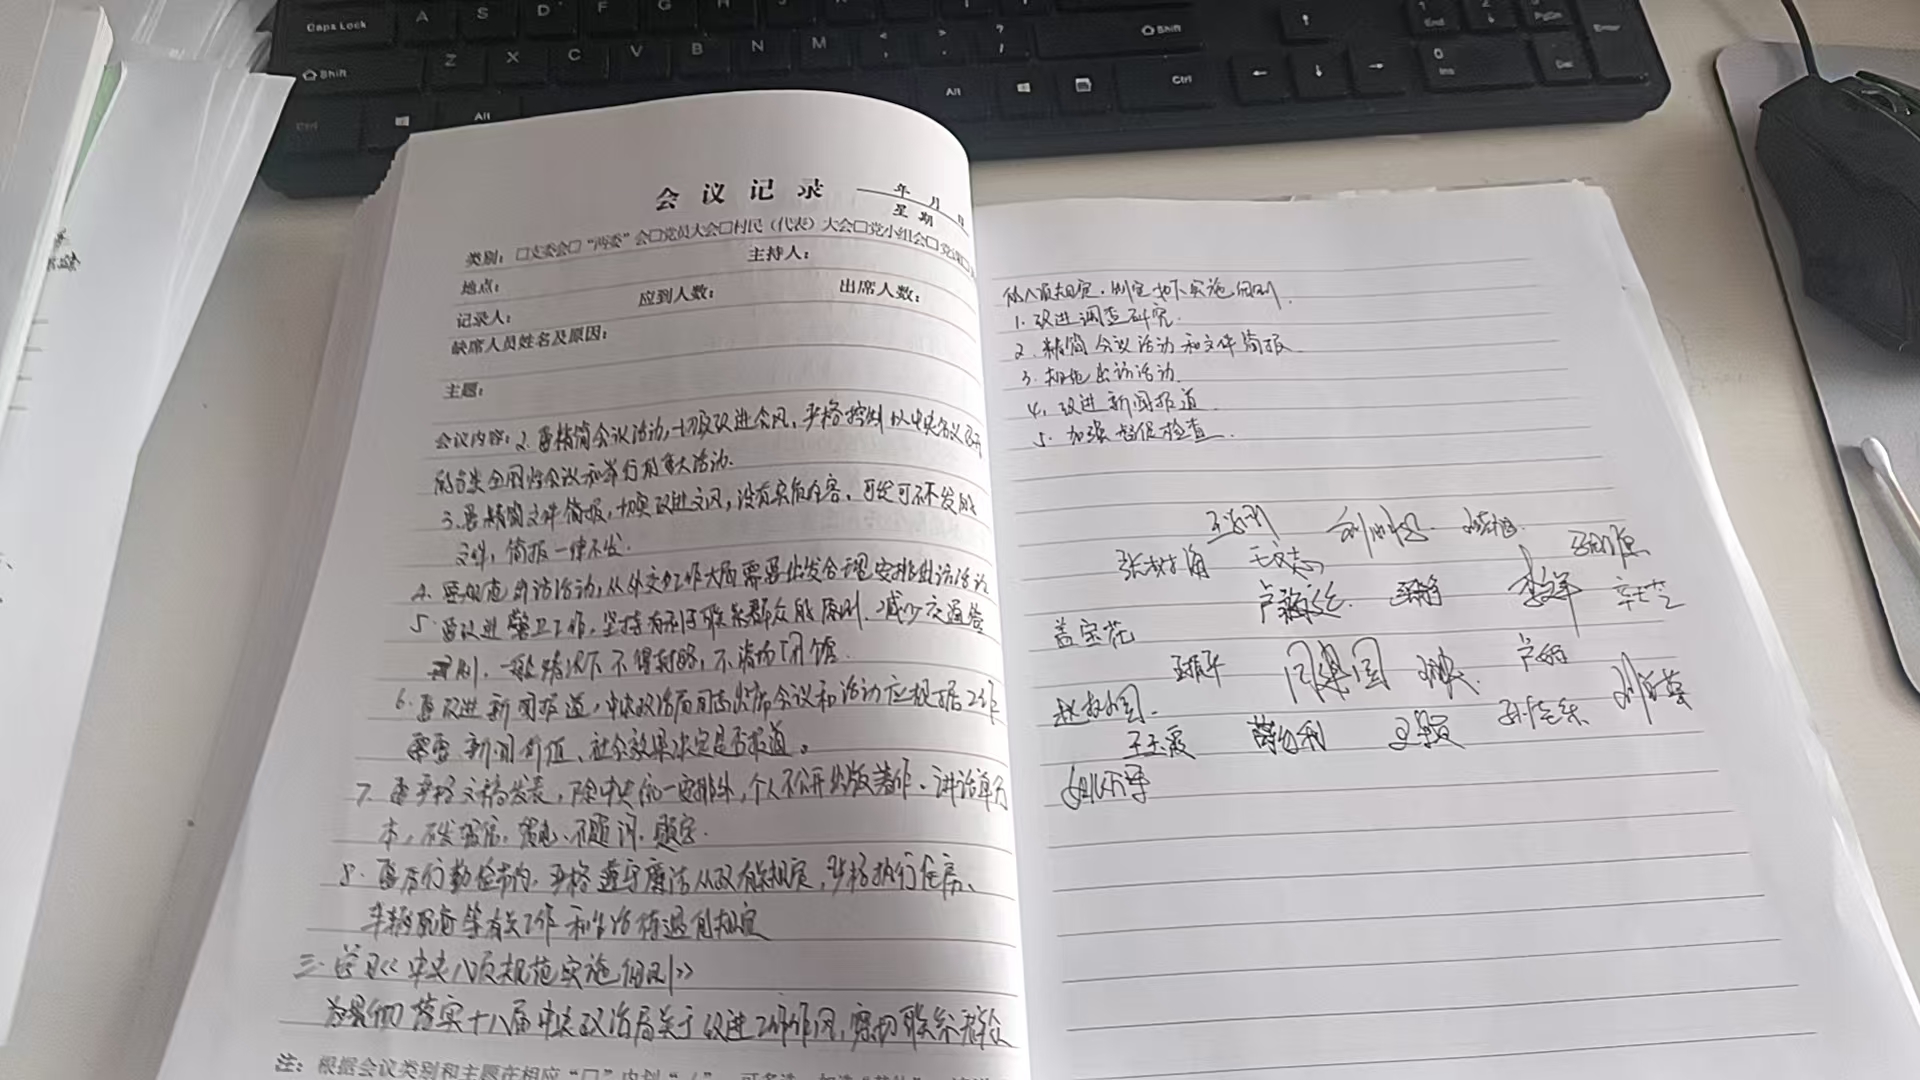 Caps Lock A S D F G H
Z X C V B N M
Shift
Shift
Ctrl
Alt
Alt
Ctrl
End
PgDn
Enter
0
Ins
Del
会议记录
年 月 日
星期
类别：□支委会□“两委”会□党员大会□村民（代表）大会□党小组会□党课□
地点： 主持人：
记录人： 应到人数： 出席人数：
缺席人员姓名及原因：
主题：
会议内容：2.要精简会议活动，切实改进会风，严格控制以中央名义召开
的各类全国性会议和举行的重大活动.
3.要精简文件简报，切实改进文风，没有实质内容、可发可不发的
文件，简报一律不发.
4.要规范出访活动，从外交工作大局需要出发合理安排出访活动
5.要改进警卫工作，坚持有利于联系群众的原则，减少交通管
一般情况下不得封路，不清场闭馆.
6.要改进新闻报道，中央政治局同志出席会议和活动应根据工作
需要、新闻价值、社会效果决定是否报道。
7.要严格文稿发表，除中央统一安排外，个人不公开出版著作、讲话单行
本，不发贺信，贺电、不题词、题字.
8.要厉行勤俭节约，严格遵守廉洁从政有关规定，严格执行住房、
车辆配备等有关工作和生活待遇的规定
三.学习《中央八项规范实施细则》
为贯彻落实十八届中央政治局关于改进工作作风，密切联系群众
注：根据会议类别和主题在相应“□”内划“√”，可多选
的八项规定，制定如下实施细则.
1.改进调查研究.
2.精简会议活动和文件简报
3.规范出访活动
4.改进新闻报道
5.加强督促检查.
张树海
盖宝花
闫建国
王玉霞